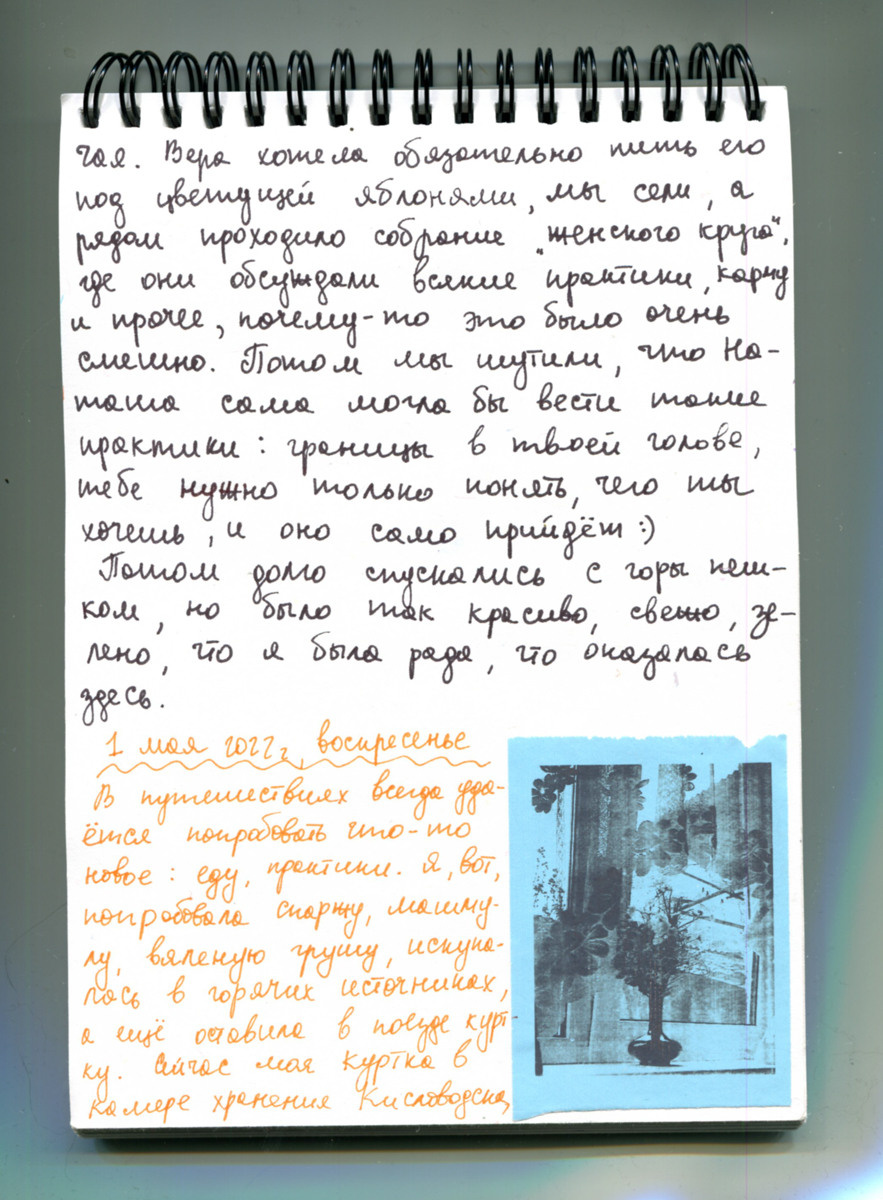 чая. Вера хотела обязательно пить его
под цветущей яблонями, мы сели, а
рядом проходило собрание „женского круга",
где они обсуждали всякие практики, карму
и прочее, почему-то это было очень
смешно. Потом мы шутили, что На-
таша сама могла бы вести такие
практики: границы в твоей голове,
тебе нужно только понять, чего ты
хочешь, и оно само прийдёт :)
Потом долго спускались с горы пеш-
ком, но было так красиво, свежо, зе-
лено, что я была рада, что оказалась
здесь.
1 мая 2022г, воскресенье
В путешествиях всегда уда-
ётся попробовать что-то
новое: еду, практики. Я, вот,
попробовала спаржу, машму-
лу, вяленую грушу, искупа-
лась в горячих источниках,
а ещё оставила в поезде курт-
ку. Сейчас моя куртка в
камере хранения Кисловодска,